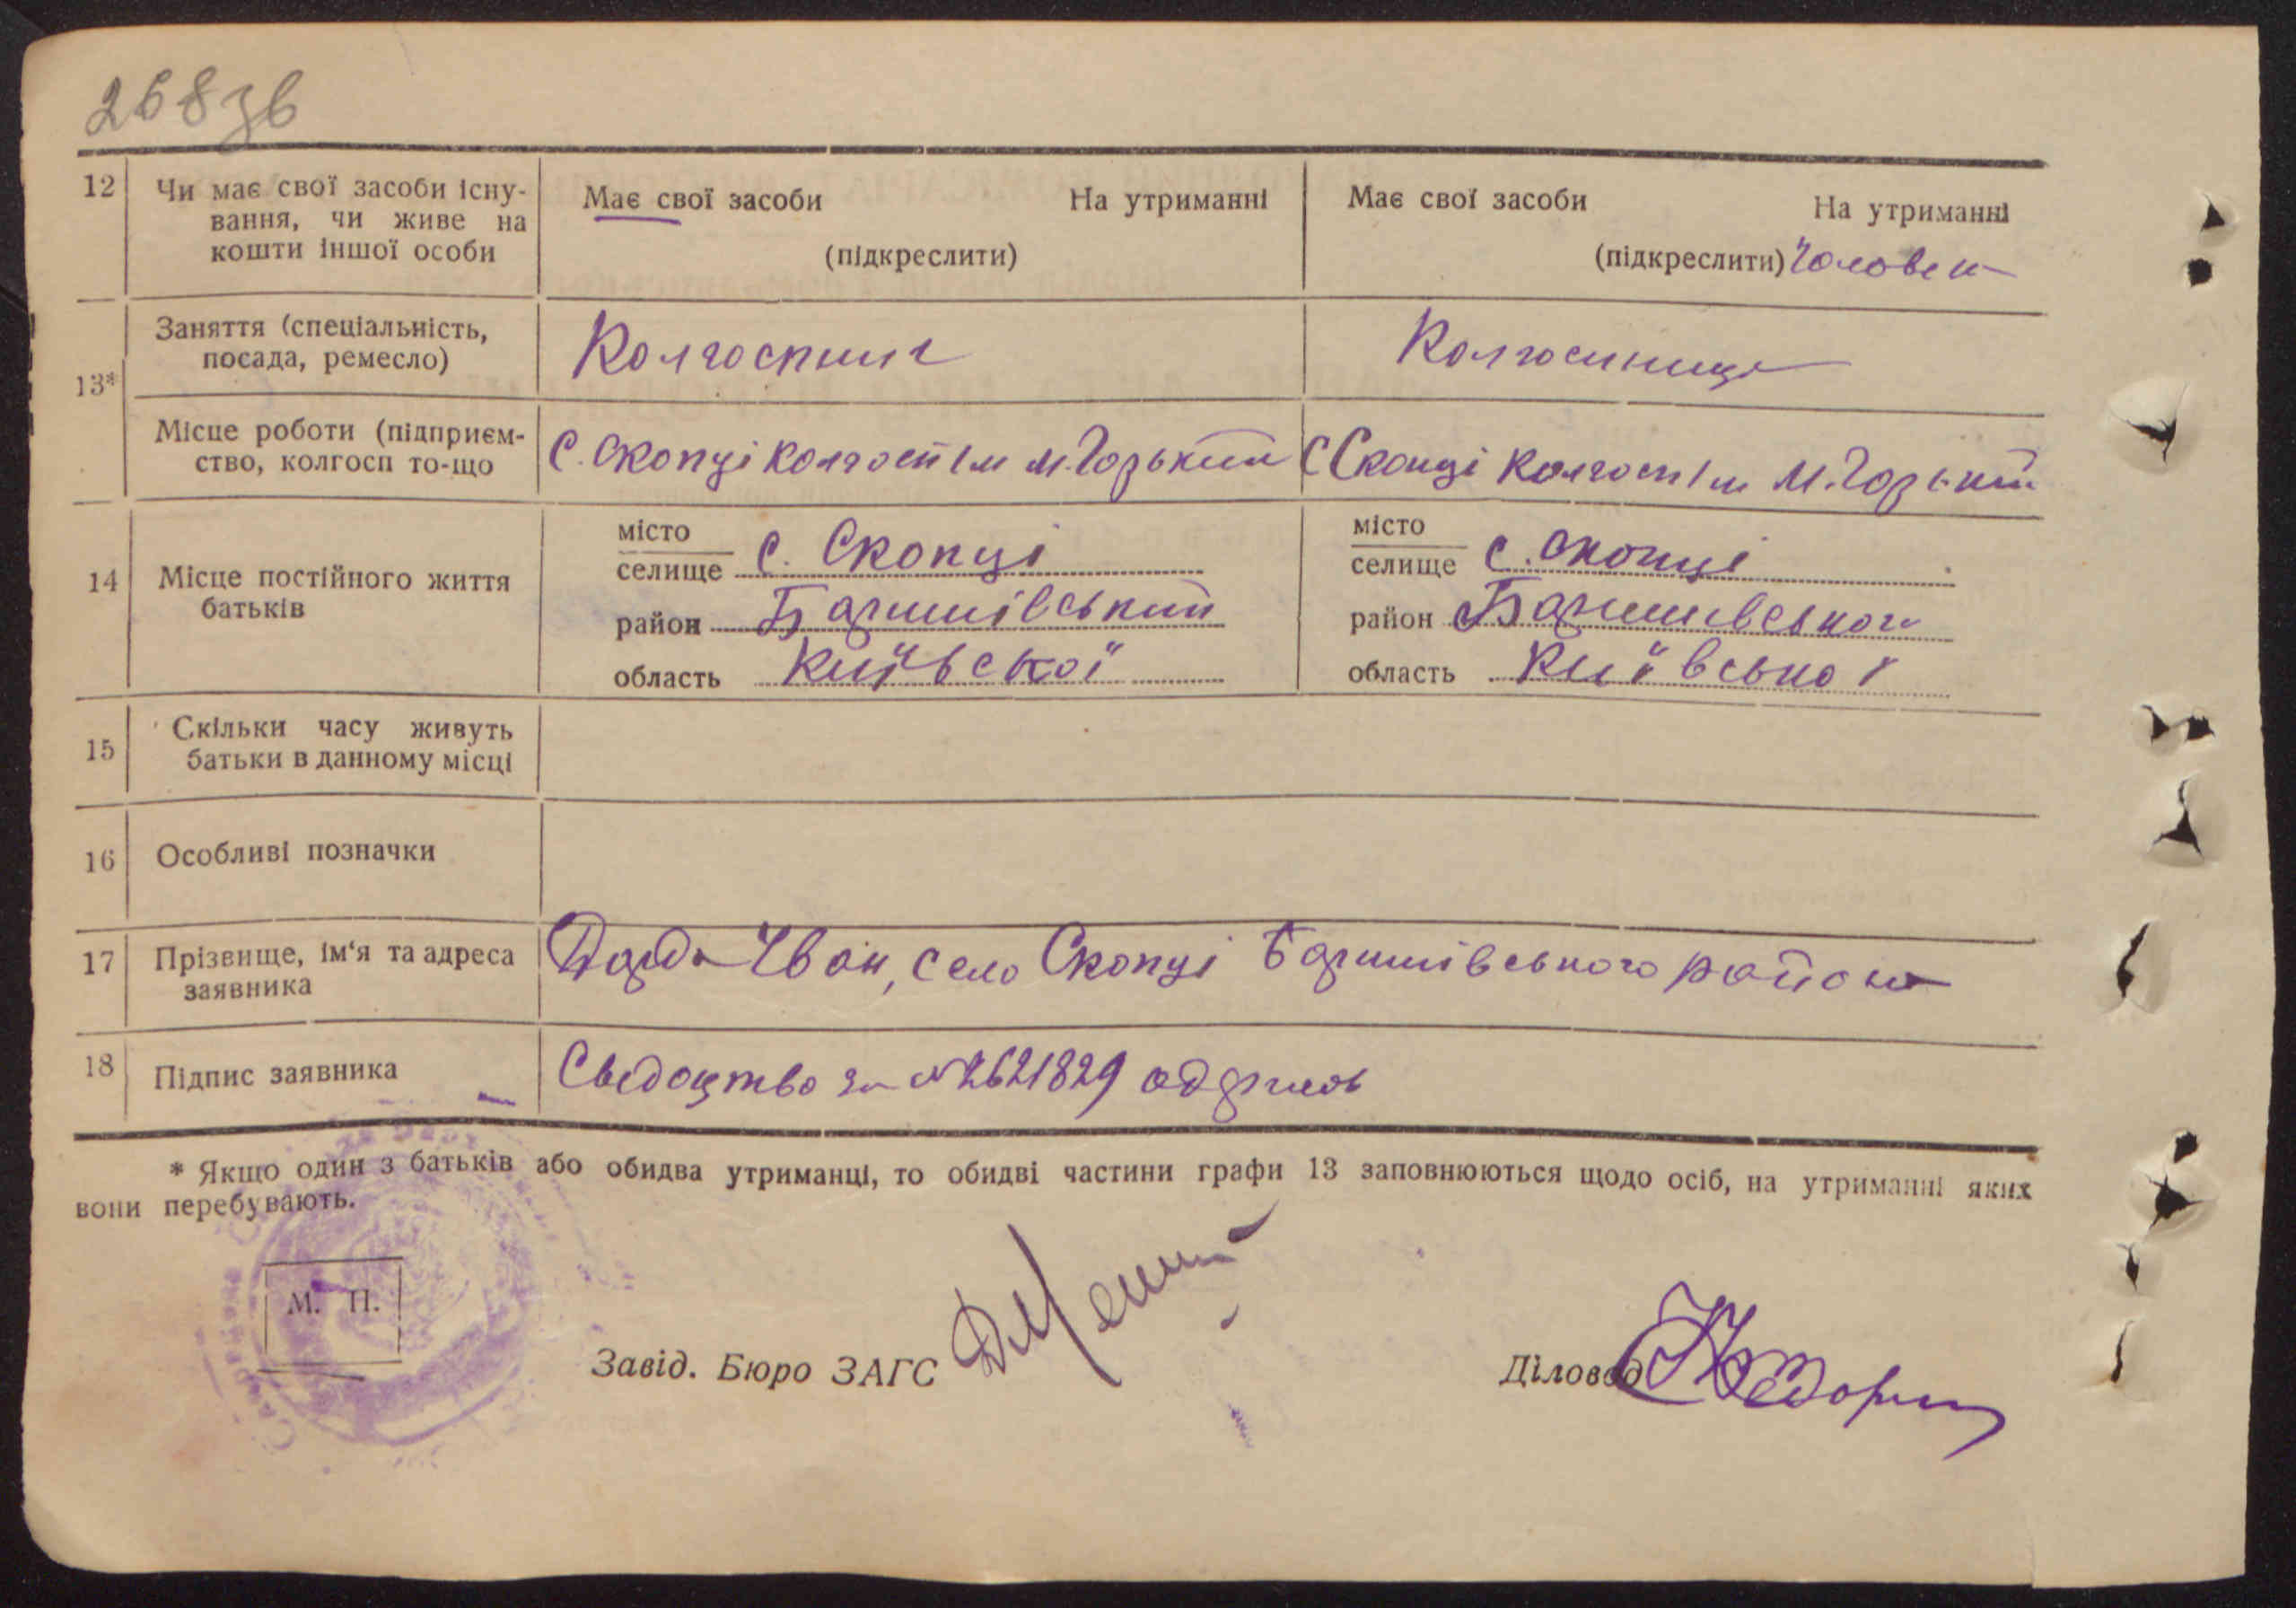 268зв
12 Чи має свої засоби існу-
вання, чи живе на
кошти іншої особи
Має свої засоби На утриманні
(підкреслити)
Має свої засоби На утриманні
(підкреслити) Чоловек
13*
Заняття (спеціальність,
посада, ремесло)
Колгоспник
Колгоспниця
Місце роботи (підприєм-
ство, колгосп то-що
С. Скопці колгосп Ім М.Горький
С Скопці колгосп Ім М.Горький
14 Місце постійного життя
батьків
місто
селище с. Скопці
район Баришівський
область Київської
місто
селище с. Скопці
район Баришивського
область Київської
15 Скільки часу живуть
батьки в данному місці
16 Особливі позначки
17 Прізвище, ім'я та адреса
заявника
Іван, село Скопці Баришівського района
18 Підпис заявника
Сведоцтво за №2621829 одержав
* Якщо один з батьків або обидва утриманці, то обидві частини графи 13 заповнюються щодо осіб, на утриманні яких
вони перебувають.
М. П.
Завід. Бюро ЗАГС
Діловод